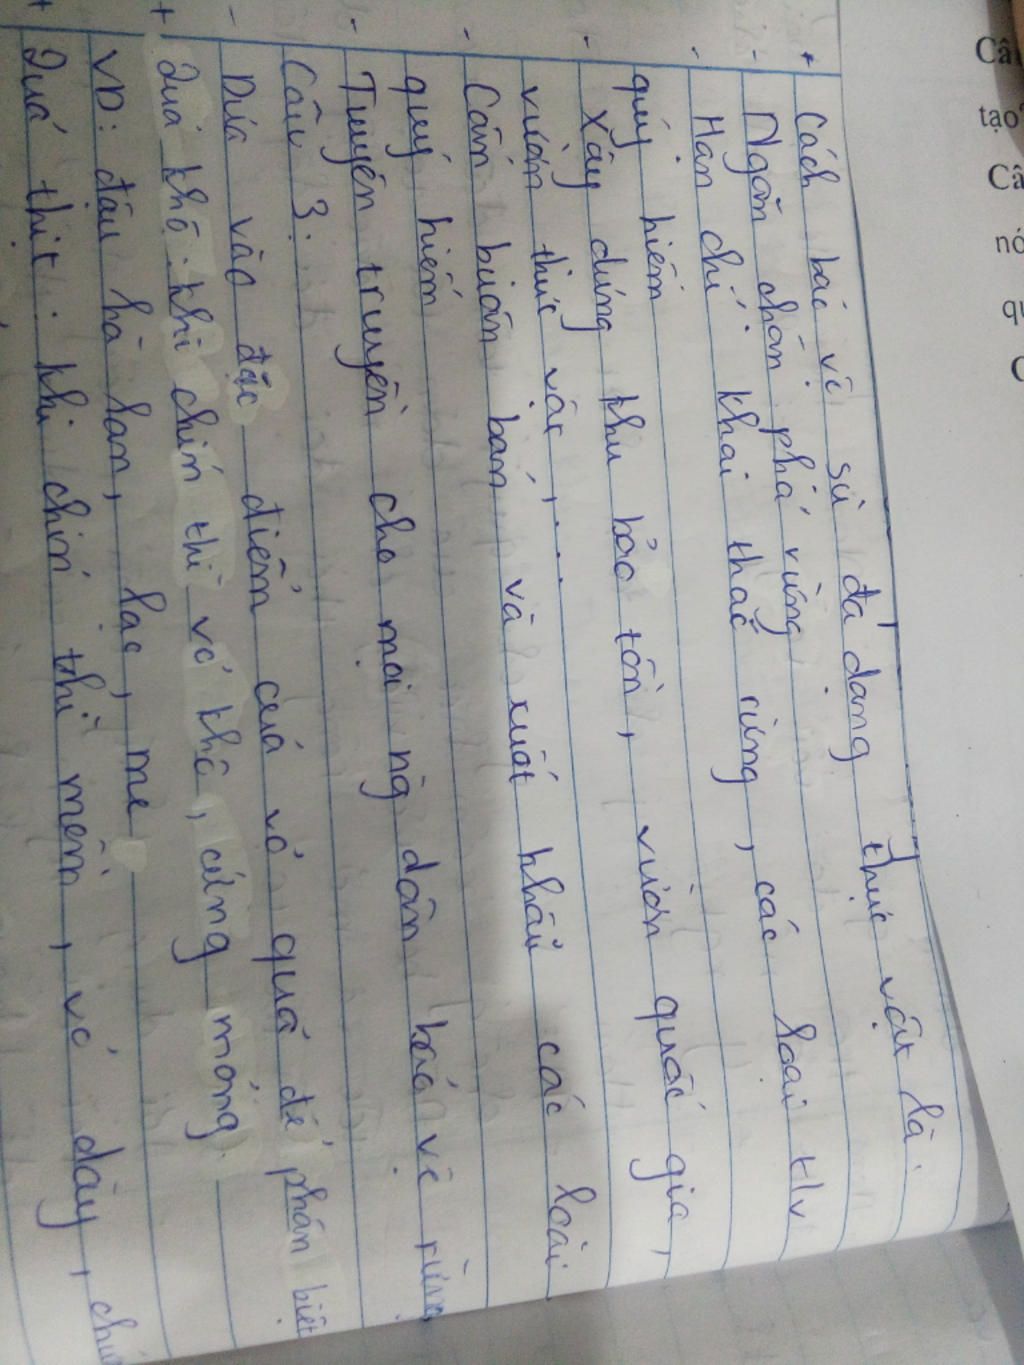 * Cách bảo vệ sự đa dạng thực vật là.
- Ngăn chặn phá rừng
- Hạn chế khai thác rừng, các loài tlv
quý hiếm
- Xây dựng khu bảo tồn, vườn quốc gia,
vườn thực vật, ....
- Cấm buôn bán và xuất khẩu các loài
quý hiếm
- Tuyên truyền cho mọi ng dân bảo vệ rừng
Câu 3.
- Dựa vào đặc điểm của vỏ quả để phân biệt
+ Quả khô: khi chín thì vỏ khô, cứng mỏng.
VD: đậu hà lan, lạc, me
+ Quả thịt: khi chín thì mềm, vỏ dày,
Câ
tạo?
Câ
nó
qu
C